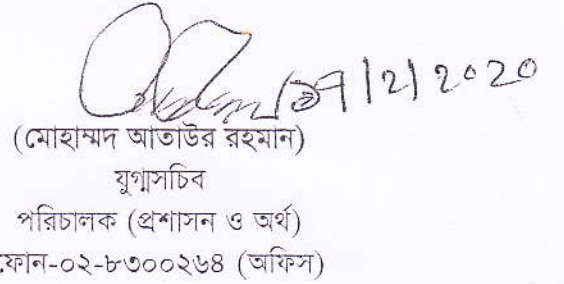 ১৭/2/2020
(মোহাম্মদ আতাউর রহমান)
যুগ্মসচিব
পরিচালক (প্রশাসন ও অর্থ)
ফোন-০২-৮৩০০২৬৪ (অফিস)